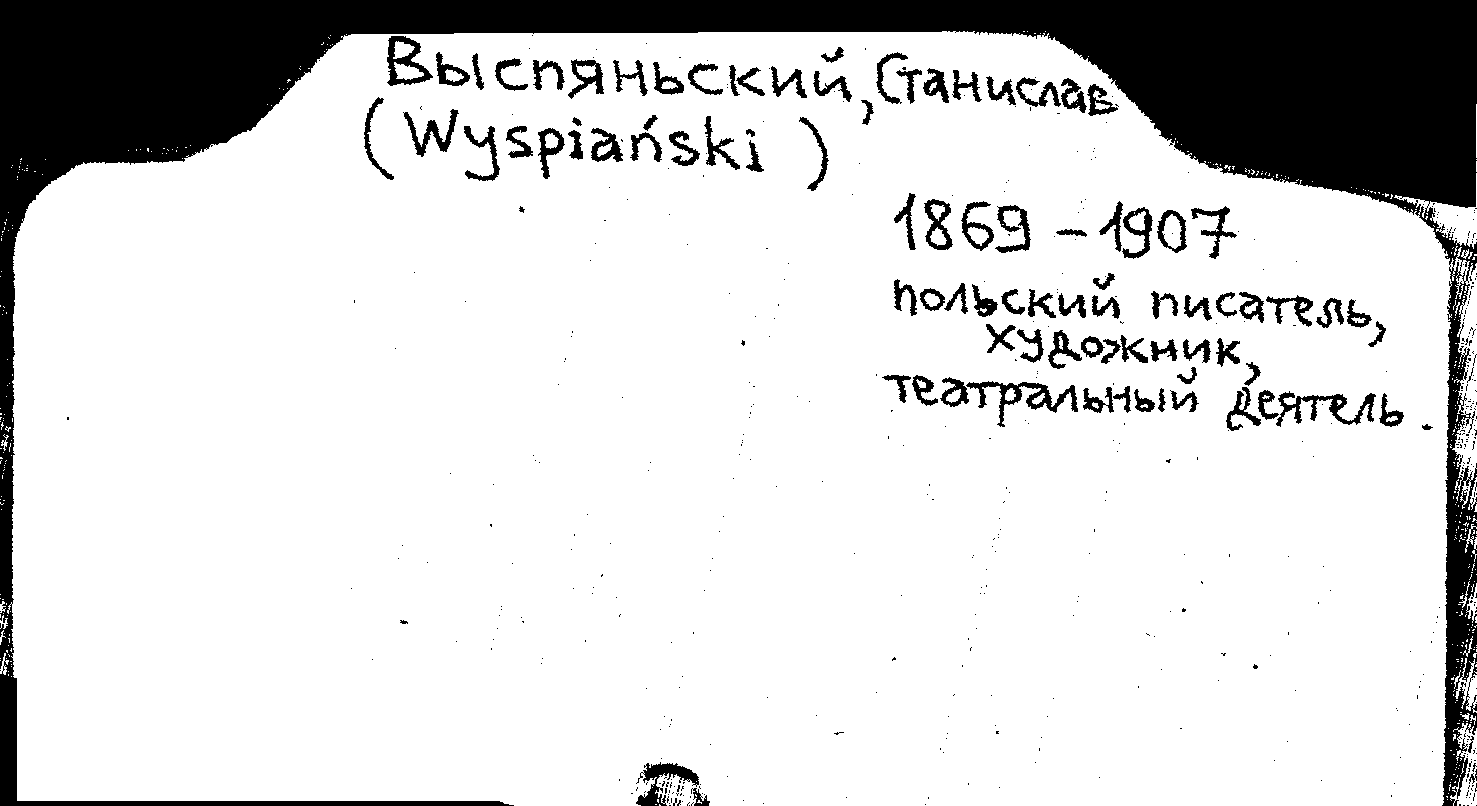 Выспяньский, Станислав
(Wyspiański )
1869 – 1907
польский писатель,
художник,
театральный деятель.